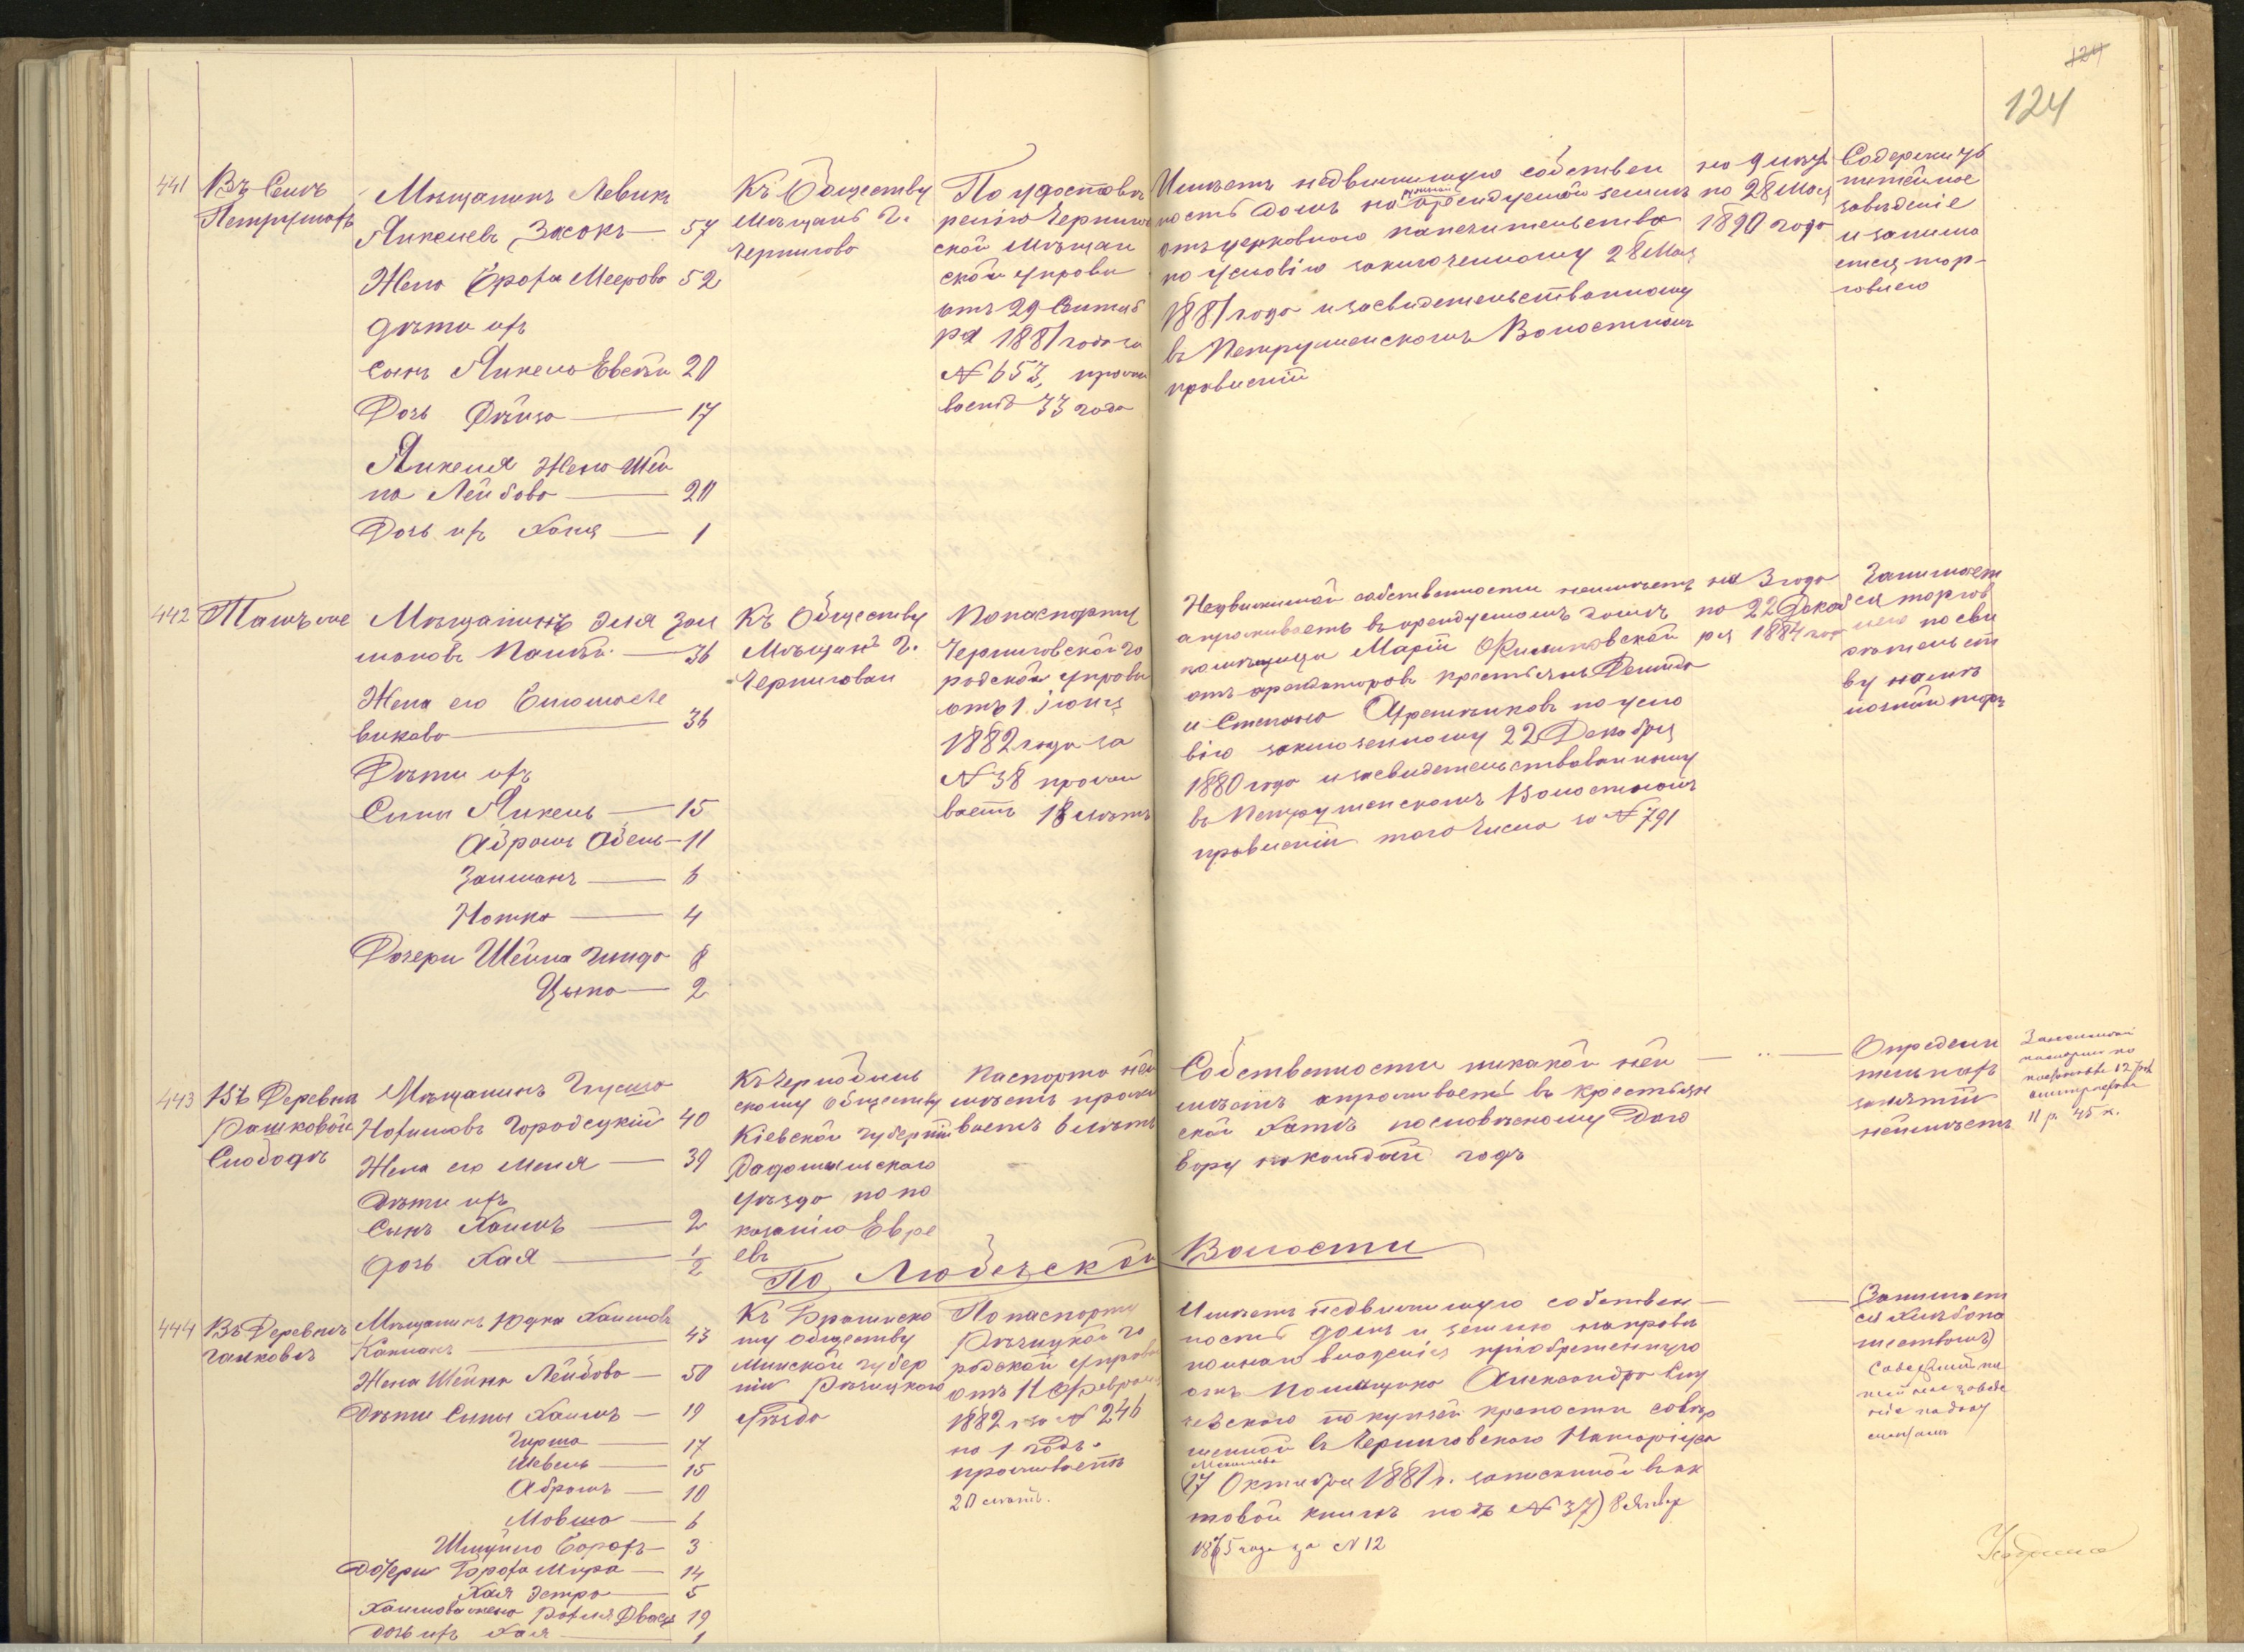 124
124
441
Въ Селѣ
Петрушахъ
Мѣщанинъ Левикъ
Янкелевъ Засокъ — 57
Жена Броха Меерова 52
Дѣти ихъ
Сынъ Янкель Евсѣй 20
Дочь Фейга — 17
Янкеля Жена Шей
на Лейбова — 20
Дочь ихъ Хана — 1
Къ Обществу
Мѣщанъ г.
Чернигова
По удостовѣ
ренію Чернигов
ской Мѣщан
ской управы
отъ 29 Сентяб
ря 1881 года за
№ 653, прожи
ваетъ 33 года
Имѣетъ недвижимую собствен
ность домъ на арендуемой землѣ
отъ церковнаго попечительства
по условію заключенному 28 Мая
1881 года и засвидетельствованному
въ Петрушенскомъ Волостномъ
правленіи
на 9 лѣтъ
по 28 Мая
1890 года
Содержитъ
питейное
заведеніе
и занима
ется тор-
говлею
442
Тамъ же
Мѣщанинъ Эля Зал
мановъ — 36
Жена его
— 36
Дѣти ихъ
Сыны Янкель — 15
Абрамъ Абель — 11
Залманъ — 6
Нотка — 4
Дочери Шейна Гинда 8
Цыпа — 2
Къ Обществу
Мѣщанъ г.
Чернигова
По паспорту
Черниговской го
родской управы
отъ 1 іюня
1882 года за
№ 38 прожи
ваетъ 18 лѣтъ
Недвижимой собственности неимѣетъ
а проживаетъ въ арендуемомъ домѣ
помѣщицы Маріи Филиповской
отъ арендаторовъ крестьянъ Демида
и Степана по усло
вію заключенному 22 Декабря
1880 года и засвидетельствованному
въ Петрушенскомъ Волостномъ
правленіи того числа за № 791
на 3 года
по 22 Декаб
ря 1884 года
Занимает
ся торгов
лею по сви
дѣтельст
ву на мѣ
лочной торгъ
443
Въ Деревнѣ
Рашковой
Слободѣ
Мѣщанинъ
Нохимовъ Городецкій 40
Жена его Меня — 39
Дѣти ихъ
Сынъ Хаимъ — 2
Дочь Хая — 1/2
Къ Чернобыль
скому обществу
Кіевской губерніи
Радомысльскаго
уѣзда по по
казанію Евре
евъ
Паспорта неи
мѣетъ прожи
ваетъ 6 лѣтъ
Собственности никакой неи
мѣетъ а проживаетъ въ крестьян
ской хатѣ пословѣсному дого
вору накаждый годъ
— " —
Опредѣли
тельныхъ
занятій
неимѣетъ
11 р. 45 к.
По Любечской Волости
444
Въ Деревнѣ
Галковѣ
Мѣщанинъ Юдка Хаимовъ
Капланъ — 43
Жена Шейна Лейбова — 50
Дѣти Сыны Хаимъ — 19
Гирша — 17
Шевель — 15
Абрамъ — 10
Мовша — 6
Шмуйла Борохъ — 3
Дочери Броха Мира — 14
Хая Эстра — 5
Хаимова жена Рохля Двося 19
дочь ихъ Хая — 1
Къ Брагинско
му обществу
Минской губер
ніи Рѣчицкого
уѣзда
По паспорту
Рѣчицкой го
родской управы
отъ 11 Февраля
1882 г. за № 246
на 1 годъ.
проживаетъ
20 лѣтъ.
Имѣетъ недвижимую собствен
ность домъ и землю направѣ
полнаго владѣнія приобретенную
отъ помѣщика Александра
по купчей крепости совер
шенной въ Черниговскаго Нотаріуса
17 Октября 1881 г. записанной въ ак
товой книгѣ подъ № 37) 8 Январ
1875 года за № 12
Занимает
ся хлѣбопа
шествомъ